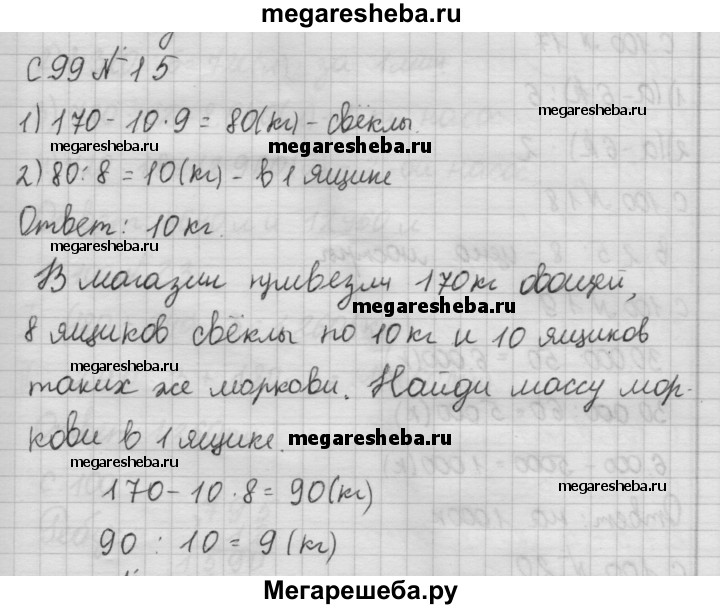 megaresheba.ru
С 99 № 15
1) 170 - 10 · 9 = 80 (кг) - свёклы.
megaresheba.ru
megaresheba.ru
2) 80 : 8 = 10 (кг) - в 1 ящике
megaresheba.ru
Ответ: 10 кг.
megaresheba.ru
В магазин привезли 170 кг овощей,
megaresheba.ru
8 ящиков свёклы по 10 кг и 10 ящиков
megaresheba.ru
таких же моркови. Найди массу мор-
кови в 1 ящике.
megaresheba.ru
megaresheba.ru
170 - 10 · 8 = 90 (кг)
megaresheba.ru
90 : 10 = 9 (кг)
Мегарешеба.ру